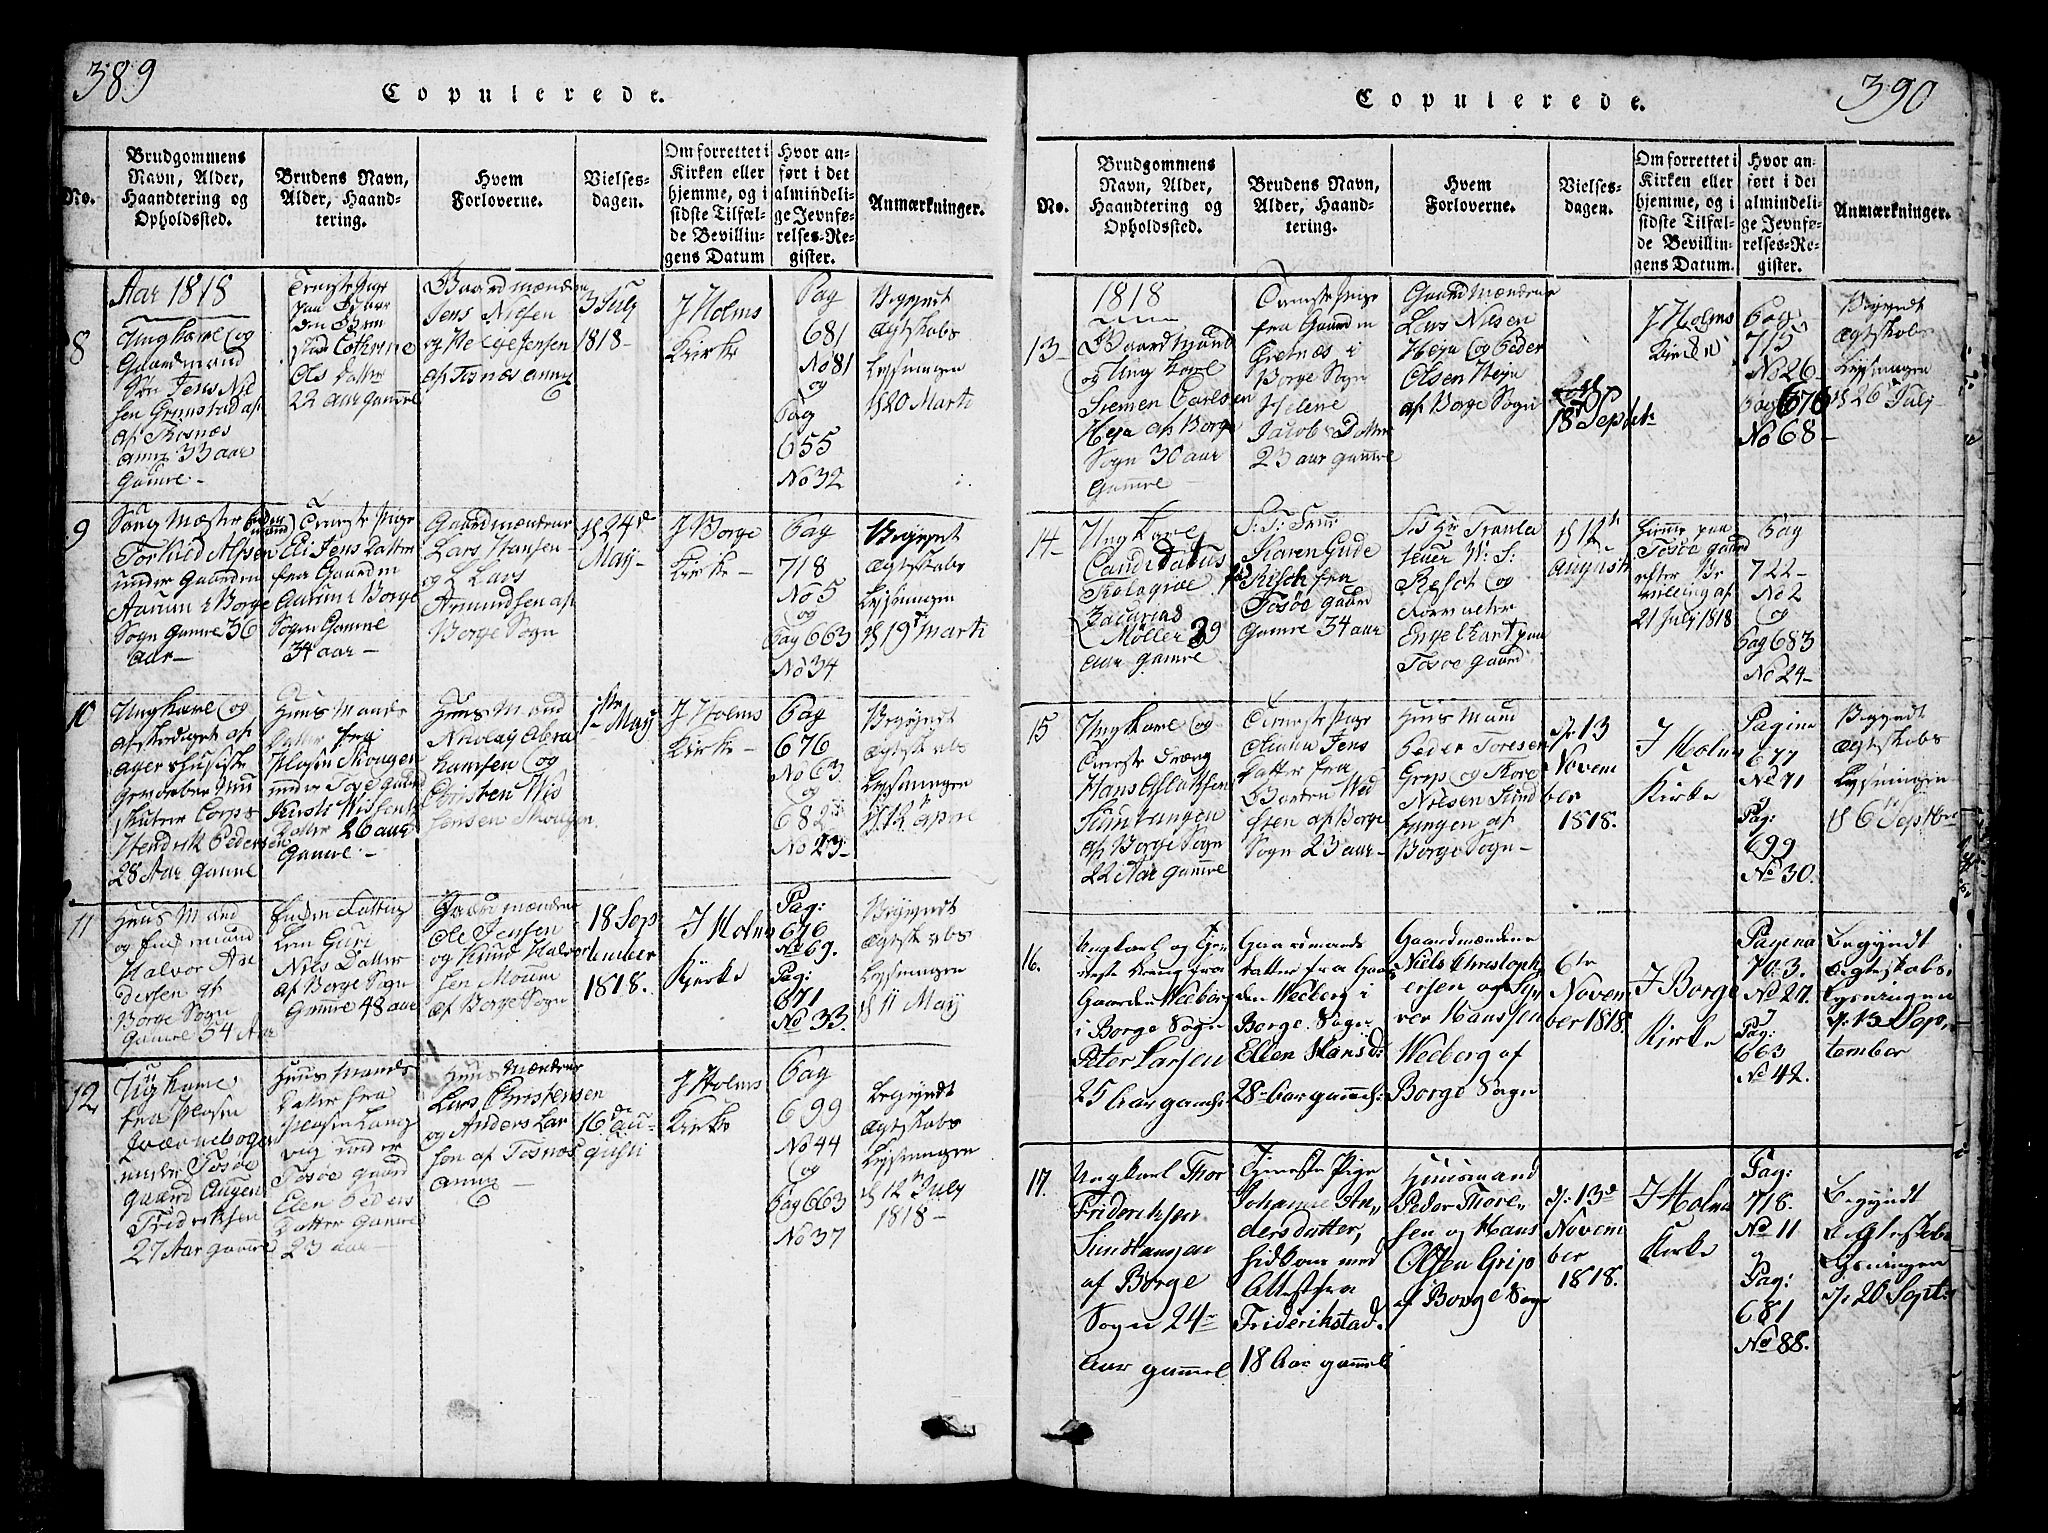 389
Copulerede.
No.
Brudgommens
Navn, Alder,
Haandtering og
Opholdssted.
Brudens Navn,
Alder, Haand-
tering.
Hvem
Forloverne.
Vielses-
dagen.
Om forrettet i
Kirken eller
hjemme, og i
sidste Tilfæl-
de Bevillin-
gens Datum
Hvor an-
ført i det
almindeli-
ge Jevnfø-
relses-Re-
gister.
Anmærkninger.
8
Aar 1818
Ung Karl og
Gaardmand
Jens Niel
sen Grimstad af
33 aar
Gamle
Ols Datter
22 aar gamle
Gaardmændene
Jens Nielsen
og Helge Jensen
af Tosnæs annex
3 July
1818
I Holms
Kirke
Pag
681
No 81
og
Pag
655
No 32
Begyndt
Ægtskabs
Lysningen
d 20 Marti
9
under Gaarden
Aarum i Borge
Sogn Gamle 36
Aar
Tieneste Pige
Eli Jens Datter
fra Gaarden
Aarum i Borge
Sogn Gamle
34 aar
Gaardmændene
Lars Hansen
og Lars
Amundsen af
Borge Sogn
d 24de
May
I Borge
Kirke
Pag
718
No 5
og
Pag 663
No 34
Begyndt
Ægtskabs
Lysningen
d 19 Marti
10
Ung Karl og
afskediget af
Corps
Hendrik Pedersen
28 Aar Gamle
Huus Mands
Datter fra
Pladsen Skougen
under Tosøe Gaard
Datter 26 aar
Gamle
Huus Mand
Nicolay Abra
hamsen og
Christen Nis
Jensen Skougen
1ste May
I Holms
Kirke
Pag
676
No 63
og
682
No 23
Begyndt
Ægtskabs
Lysningen
d 12 April
11
Huus Mand
og Enkemand
Halvor An
dersen af
Borge Sogn
Gamle 54 Aar
Guri
Niels Datter
af Borge Sogn
Gamle 48 aar
Gaardmændene
Ole Jensen
og Knud Halvor
sen Moum
af Borge Sogn
18 Sep
tember
1818.
I Holms
Kjerke
Pag:
676
No 69.
Pag:
671
No 33.
Begyndt
Ægtskabs
Lysningen
d 11 May
12
Ung Karl
fra Pladsen
under Tosøe
gaard Augen
Fridriksen
27 Aar gamle
Huus Mands
Datter fra
Pladsen Lang
vig under
Tosøe gaard
Elen Peders
Datter Gamle
23 aar
Huus Mændene
Lars Christensen
og Anders Lar
sen af Tosnæs
annex
16de Au-
gusti
I Holms
Kirke
Pag
699
No 44
og
Pag 663
No 37
Begyndt
Ægtskabs
Lysningen
d 12 July
1818
390
Copulerede.
No.
Brudgommens
Navn, Alder,
Haandtering og
Opholdssted.
Brudens Navn,
Alder, Haand-
tering.
Hvem
Forloverne.
Vielses-
dagen.
Om forrettet i
Kirken eller
hjemme, og i
sidste Tilfæl-
de Bevillin-
gens Datum.
Hvor an-
ført i det
almindeli-
ge Jevnfø-
relses-Re-
gister.
Anmærkninger.
13
1818
Gaardmand
og Ung Karl
Siemen Carlsen
Heja af Borge
Sogn 30 aar
Gamle
Tieneste Pige
fra Gaarden
i
Borge Sogn
Helene
Jacobs Datter
23 aar gamle
Gaardmændene
Lars Nilsen
Heja og Peder
Olsen Heja
af Borge Sogn
18 Septbr
I Holms
Kirke
Pag
715
No 26
Pag 676
No 68
Begyndt
Ægtskabs
Lysningen
d 26 July
14
Ung Karl
Candidatus
Zacarias
Møller 39
aar gamle
Karen Gude
Resch fra
Tosøe gaard
Gamle 34 aar
Resch og
Forvalter
Engelhart paa
Tosøe gaard
d 12te
August
hjemme paa
Tosøe gaard
efter Be
villing af
21 July 1818
Pag
722
No 2
og
Pag 683
No 24
15
Ung Karl og
Tieneste Dreng
af Borge Sogn
22 Aar gamle
Tieneste Pige
Jens
Datter fra
af Borge
Sogn 23 aar
Huus Mand
Peder Toresen
Grip og Thore
Nielsen
af
Borge Sogn
d: 13
Novem
ber
1818.
I Holms
Kirke
Pagina
677
No 71
Pag:
699
No 30.
Begyndt
Ægtskabs
Lysningen
d 6 Septber
16.
Ungkarl og Tjen
neste Dreng fra
Gaarden Weeberg
i Borge Sogn
Peter Larsen
25 Aar gammel
Gaardmands
Datter fra Gaar
den Weeberg i
Borge Sogn
Ellen Hansd:
28 Aar gammel:
Gaardmændene
Niels Christoph
ersen og Sy
ver Hanssen
Weeberg af
Borge Sogn
6te
Novem
ber 1818.
I Borge
Kirke
Pagina
703.
No 27.
Pag:
663
No 42.
Begyndt
Ægteskabs
Lysningen
d: 13 Sep,
tember
17.
Ungkarl Thor
Friderichsen
af Borge
Sogn 24
aar gamel
Tjeneste Pige
Johanne An-
dersdatter,
hidkom med
Attest fra
Friderikstad.
18 Aar gamel
Huusmand
Peder Thore-
sen og Hans
Olsen Grip
af Borge Sogn
d: 13de
Novem
ber
1818.
I Holms
Kirke
Pag:
718.
No 11
og
Pag:
681
No 88.
Begyndt
Ægteskabs
Lysningen
d: 20 Sept.